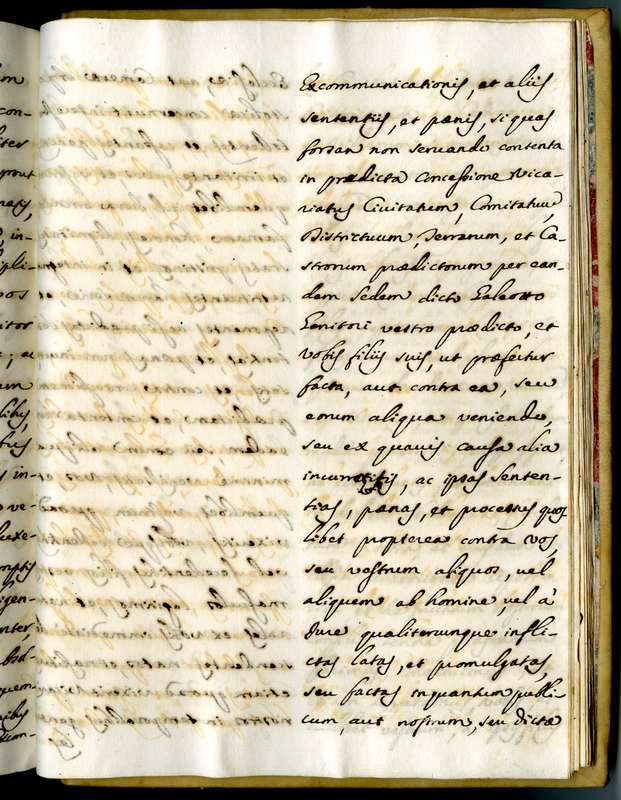 on
con-
iter
prout
, in-
ipli-
pos
itor
; ac
um
libus,
bus
s in-
o ve-
uexe-
mptis
igen-
nter
bsd-
quem-
Excommunicationis, et aliis
sententiis, et pænis, si quas
forsan non servando contenta
in prædicta concessione Vica-
riatus Civitatum, Comitatuu,
Districtuum, Terrarum, et Ca-
strorum prædictorum per ean-
dem sedem dicto Galeotto
Genitori vestro prædicto, et
vobis filiis suis, ut præfertur
facta, aut contra ea, seu
eorum aliqua veniendo,
seu ex quavis causa alia
incurristis, ac ipsas senten-
tias, pænas, et processus quos
libet propterea contra vos,
seu vestrum aliquos, vel
aliquem ab homine, vel à
Jure qualitercunque infli-
ctas latas, et promulgatas,
seu factas inquantum publi-
cum, aut nostrum, seu dictæ